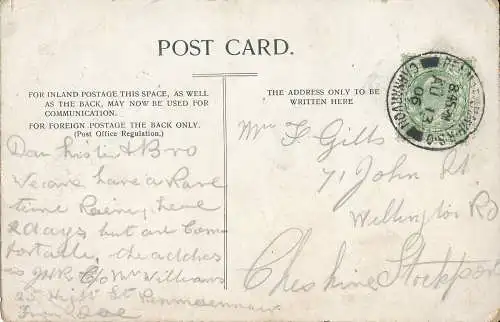 POST CARD.
FOR INLAND POSTAGE THIS SPACE, AS WELL
AS THE BACK, MAY NOW BE USED FOR
COMMUNICATION.
FOR FOREIGN POSTAGE THE BACK ONLY.
(Post Office Regulation.)
THE ADDRESS ONLY TO BE
WRITTEN HERE
AU 13
06
CARNARVON
Dear Sister & Bro
We are have a Rare
time Rainy here
2 days but are Com
fortable, the address
is JHR C/o Mrs Williams
25 High St Penmaenmawr
From
F Gills
71 John St
Wellington Rd
Stockport
Cheshire